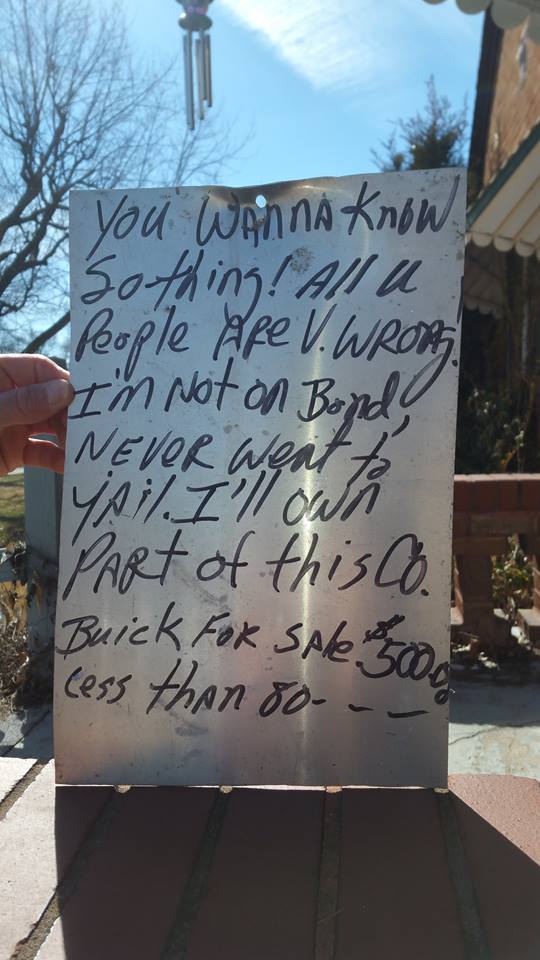 You WANNA Know
Sothing! All u
People ARe V. WRONG!
I'm Not on Bond!
NEVER Went to
YAil. I'll own
PARt of this Co.
Buick FOR SAle. $500.00
Less than 80- - -